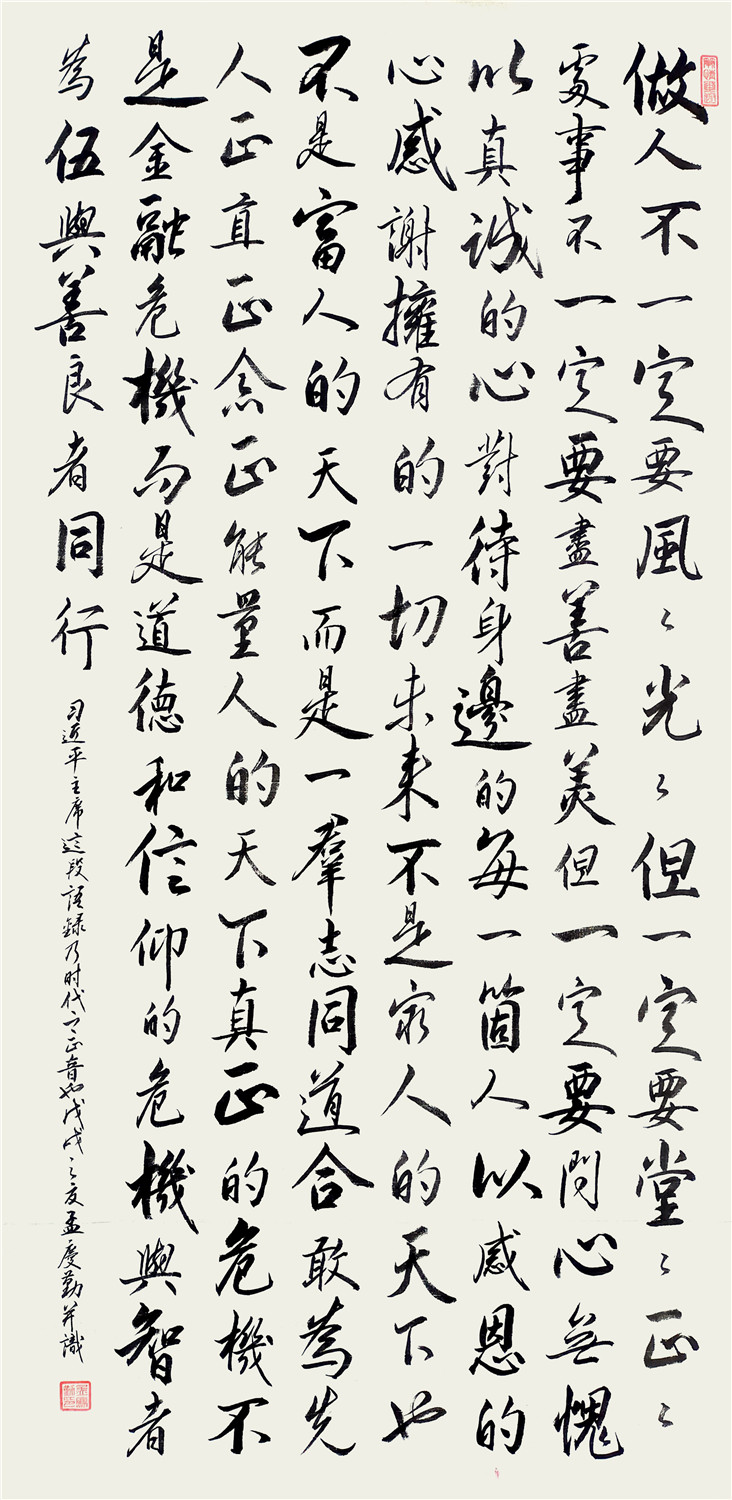 做人不一定要風々光々但一定要堂々正々
處事不一定要盡善盡美但一定要問心無愧
以真誠的心對待身邊的每一箇人以感恩的
心感謝擁有的一切未來不是窮人的天下也
不是富人的天下而是一羣志同道合敢為先
人正直正念正能量人的天下真正的危機不
是金融危機而是道德和信仰的危機與智者
為伍與善良者同行
习近平主席這段語録乃时代之正音也戊戌之夏孟慶勤並識